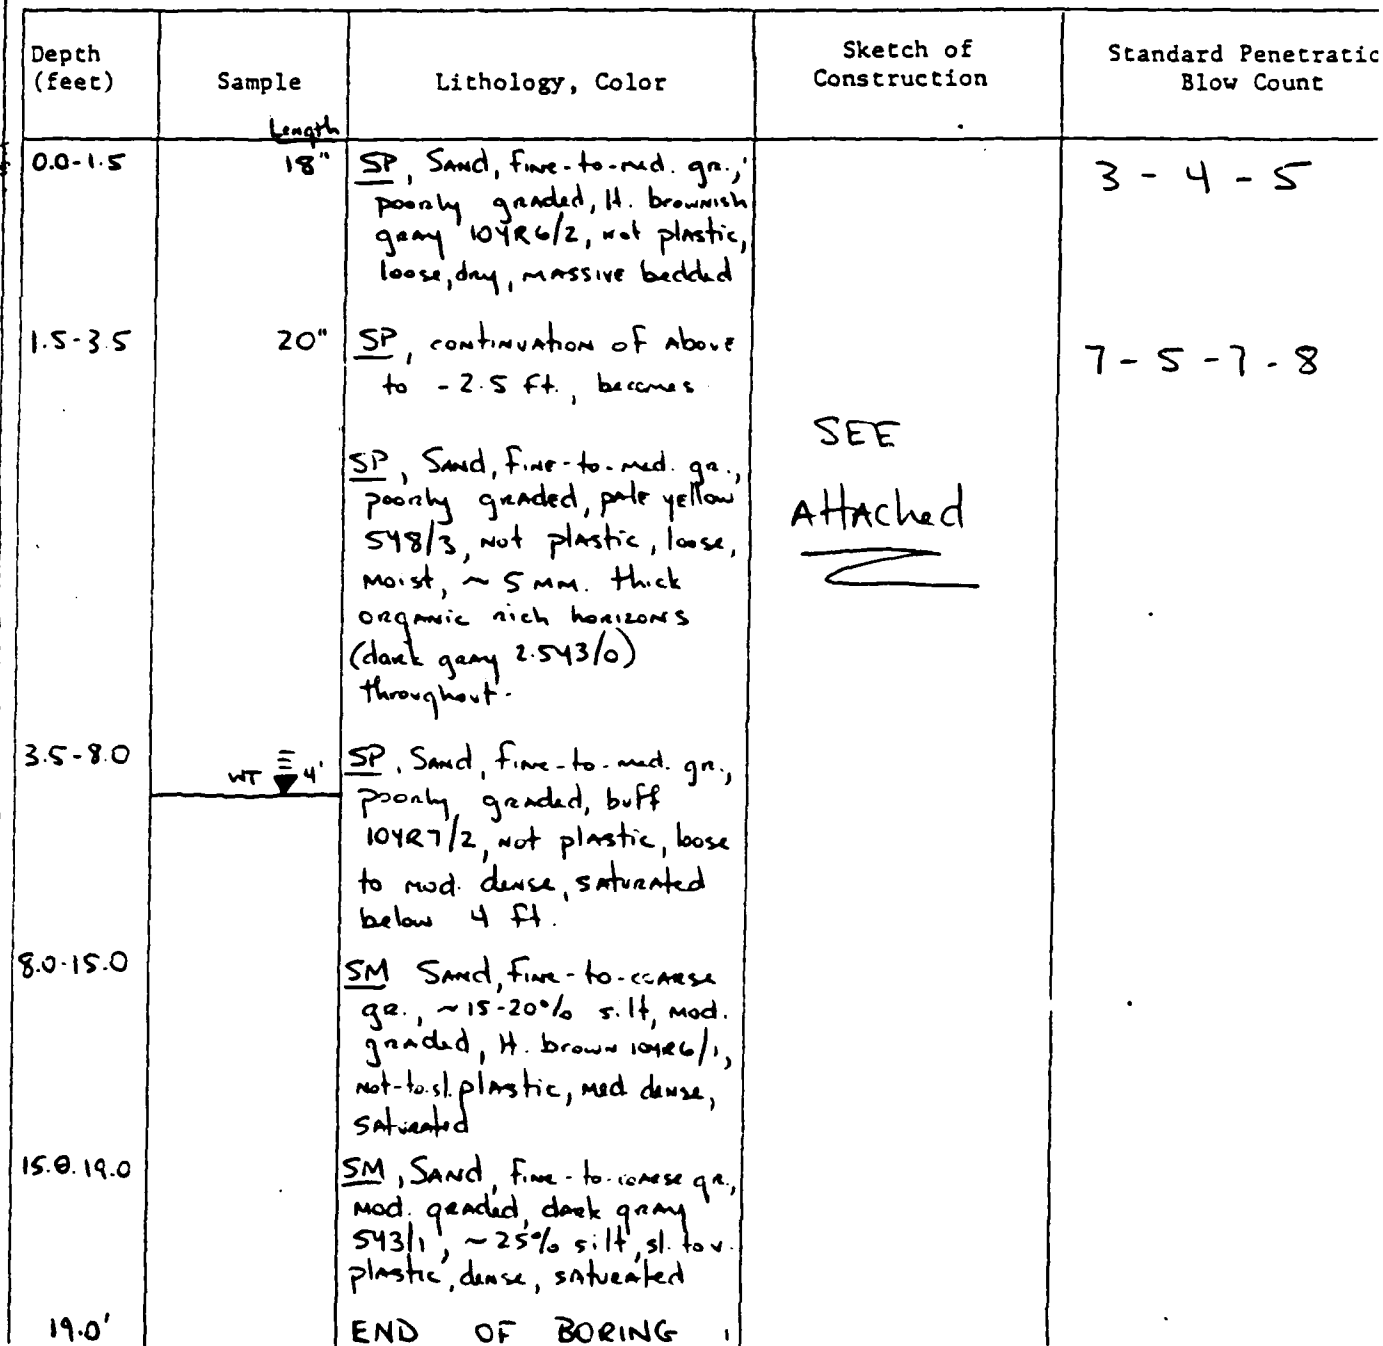 Depth
(feet)
Sample
Length
Lithology, Color
Sketch of
Construction
Standard Penetratio
Blow Count
0.0-1.5
18"
SP, Sand, fine-to-med. gr.,
poorly graded, lt. brownish
gray 10YR6/2, not plastic,
loose, dry, massive bedded
3 - 4 - 5
1.5-3.5
20"
SP, continuation of above
to -2.5 ft., becomes
7 - 5 - 7 - 8
SP, Sand, fine-to-med. gr.,
poorly graded, pale yellow
5Y8/3, not plastic, loose,
moist, ~ 5 mm. thick
organic rich horizons
(dark gray 2.5Y3/0)
throughout.
SEE
Attached
3.5-8.0
WT 4'
SP, Sand, fine-to-med. gr.,
poorly graded, buff
10YR7/2, not plastic, loose
to mod. dense, saturated
below 4 ft.
8.0-15.0
SM Sand, fine-to-coarse
gr., ~15-20% silt, mod.
graded, lt. brown 10YR6/1,
not-to-sl. plastic, med dense,
saturated
15.0-19.0
SM, Sand, fine-to-coarse gr.,
mod. graded, dark gray
5Y3/1, ~25% silt, sl. to v.
plastic, dense, saturated
19.0'
END OF BORING